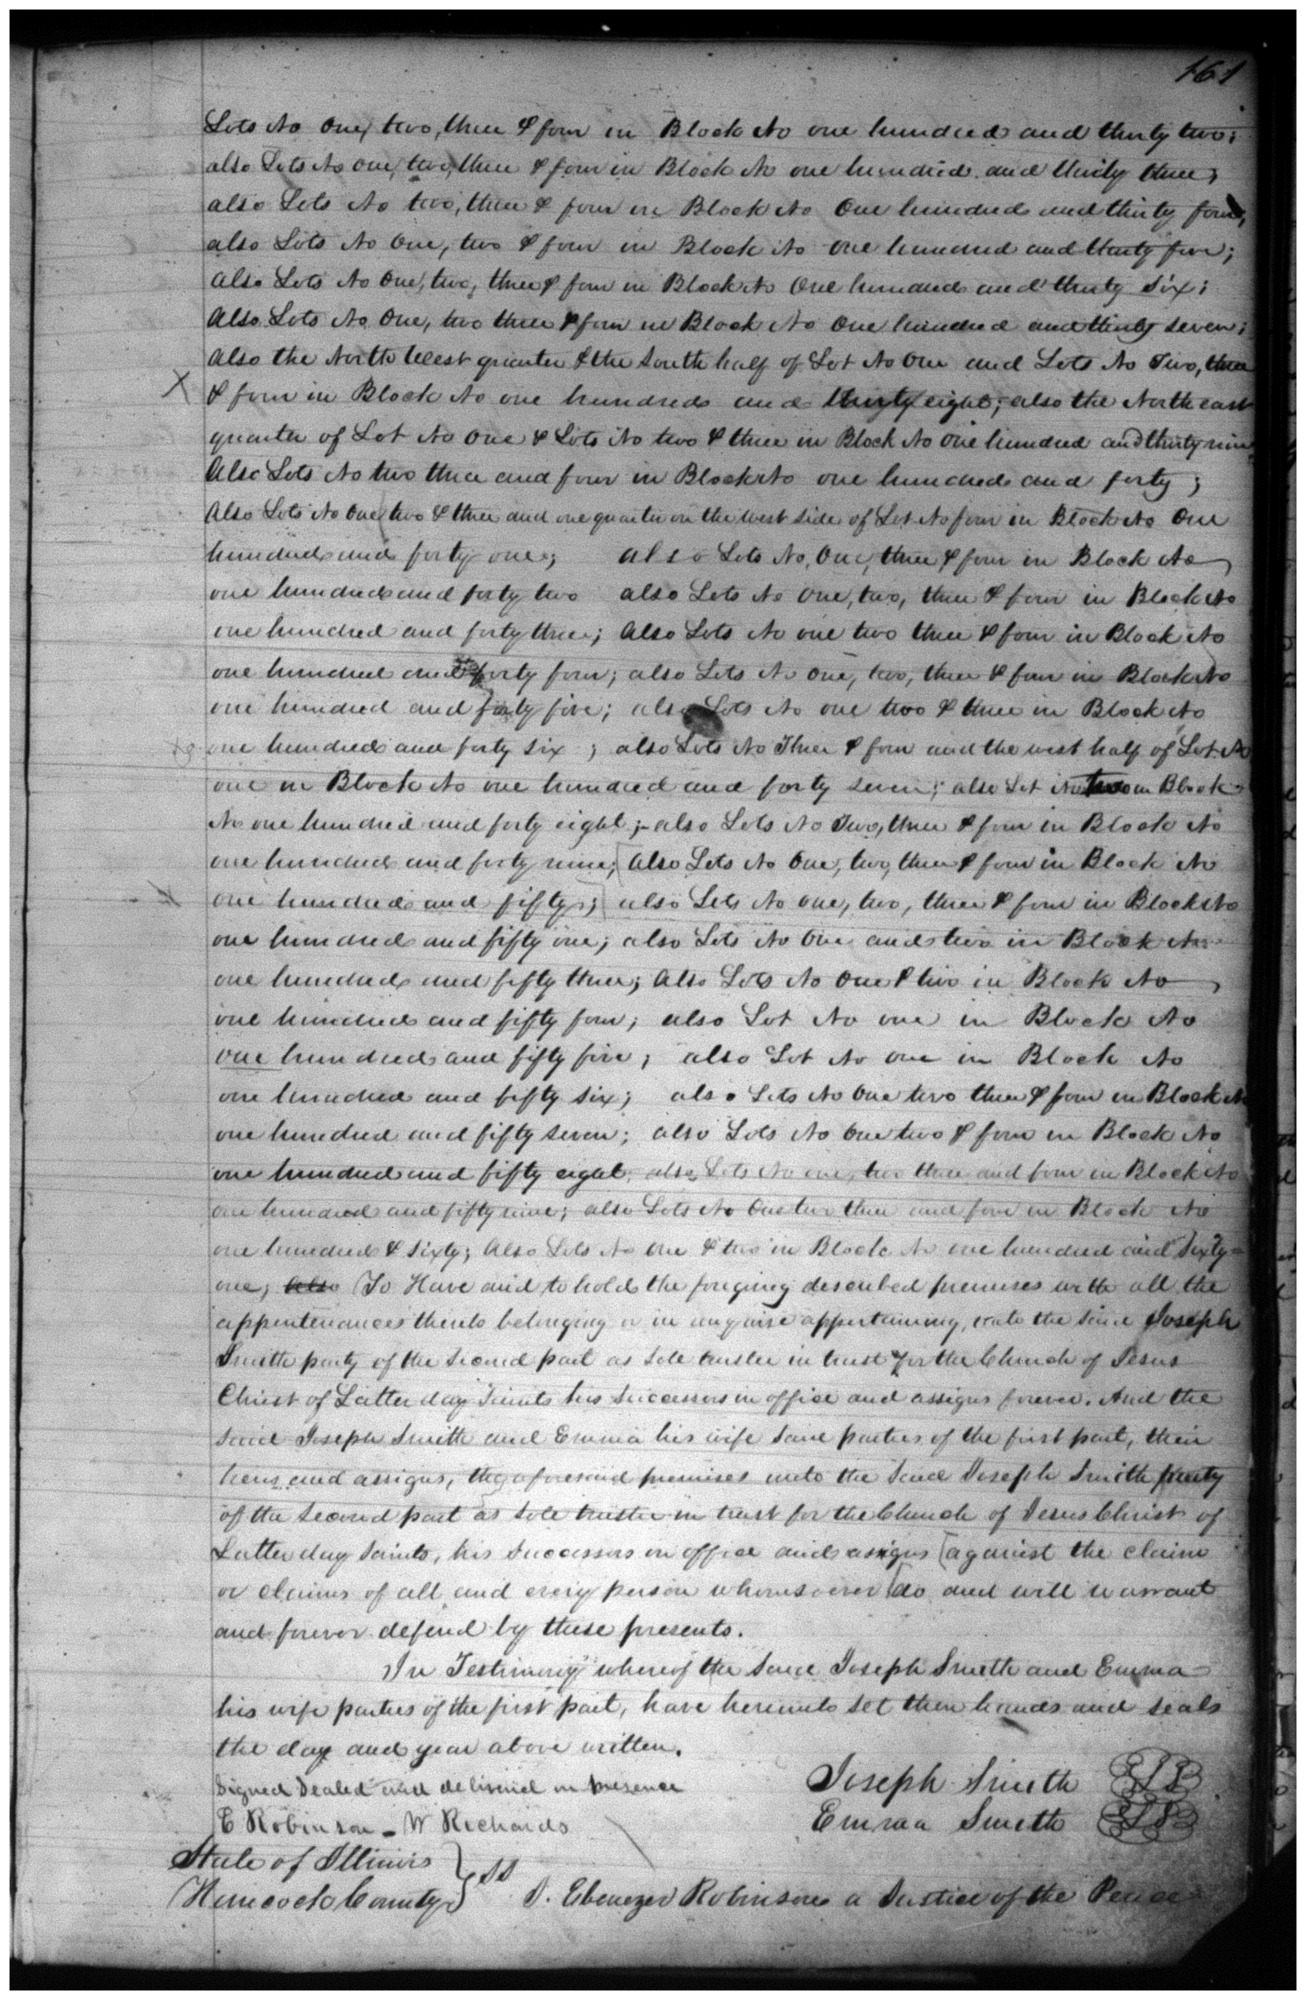 161
Lots No One, two, three & four in Block No one hundred and thirty two;
also Lots No One, two, three & four in Block No one hundred and thirty three;
also Lots No two, three & four in Block No One hundred and thirty four,
also Lots No One, two & four in Block No one hundred and thirty five;
also Lots No One, two, three & four in Block No One hundred and thirty six;
Also Lots No One, two three & four in Block No One hundred and thirty seven;
Also the North West quarter & the South half of Lot No One and Lots No Two, three
X & four in Block No one hundred and thirty eight; also the North east
quarter of Lot No One & Lots No two & three in Block No One hundred and thirty nine
Also Lots No two three and four in Block No one hundred and forty;
Also Lots No One, two & three and one quarter on the West side of Lot No four in Block No One
hundred and forty one; also Lots No, One, three & four in Block No
one hundred and forty two also Lots No One, two, three & four in Block No
one hundred and forty three; Also Lots No one two three & four in Block No
one hundred and forty four; also Lots No One, two, three & four in Block No
one hundred and forty five; also Lots No one two & three in Block No
one hundred and forty six; also Lots No Three & four and the west half of Lot No
one in Block No one hundred and forty seven; also Lot No two in Block
No one hundred and forty eight; also Lots No Two, three & four in Block No
one hundred and forty nine; [also Lots No One, two, three & four in Block No
one hundred and fifty;] also Lots No one, two, three & four in Block No
one hundred and fifty one; also Lots No One and two in Block No
one hundred and fifty three; Also Lots No One & two in Block No
one hundred and fifty four; also Lot No one in Block No
one hundred and fifty five; also Lot No one in Block No
one hundred and fifty six; also Lots No One two three & four in Block No
one hundred and fifty seven; also Lots No One two & four in Block No
one hundred and fifty eight, also Lots No one, two three and four in Block No
one hundred and fifty nine; also Lots No One two three and four in Block No
one hundred & sixty; Also Lots No One & two in Block No one hundred and Sixty
one; also To Have and to hold the foregoing described premises with all the
appurtenances thereto belonging or in anywise appertaining, unto the said Joseph
Smith party of the second part as sole trustee in trust for the Church of Jesus
Christ of Latter day Saints his successors in office and assigns forever. And the
said Joseph Smith and Emma his wife said parties of the first part, their
heirs and assigns, the aforesaid premises unto the said Joseph Smith party
of the second part as sole trustee in trust for the Church of Jesus Christ of
Latter day Saints, his successors in office and assigns [against the claim
or claims of all and every person whomsoever] do and will warrant
and forever defend by these presents.
In Testimony whereof the said Joseph Smith and Emma
his wife parties of the first part, have hereunto set their hands and seals
the day and year above written.
Signed Sealed and delivered in presence
Joseph Smith
E Robinson - W Richards
Emma Smith
State of Illinois
Hancock County } SS I. Ebenezer Robinson a Justice of the Peace